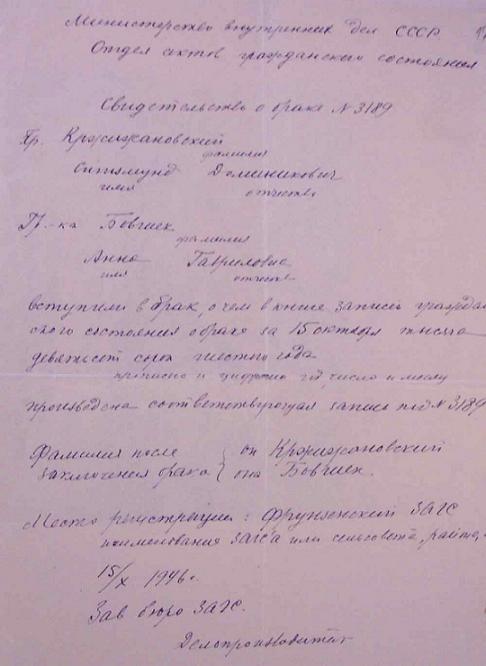 Министерство внутренних дел СССР
Отдел актов гражданского состояния
Свидетельство о браке N 3189
Гр. Кржижановский
фамилия
Сигизмунд Доминикович
имя отчество
Гр-ка Бовшек
фамилия
Анна Гавриловна
имя отчество
вступили в брак, о чем в книге записи граждан
ского состояния о браке за 15 октября тысяча
девятьсот сорок шестого года
прописью и цифрами год, число и месяц
произведена соответствующая запись под N 3189
Фамилия после он Кржижановский
заключения брака она Бовшек.
Место регистрации: Фрунзенский ЗАГС
наименование ЗАГСа или сельсовета, района,
15/X 1946 г.
Зав бюро ЗАГС.
Делопроизводитель